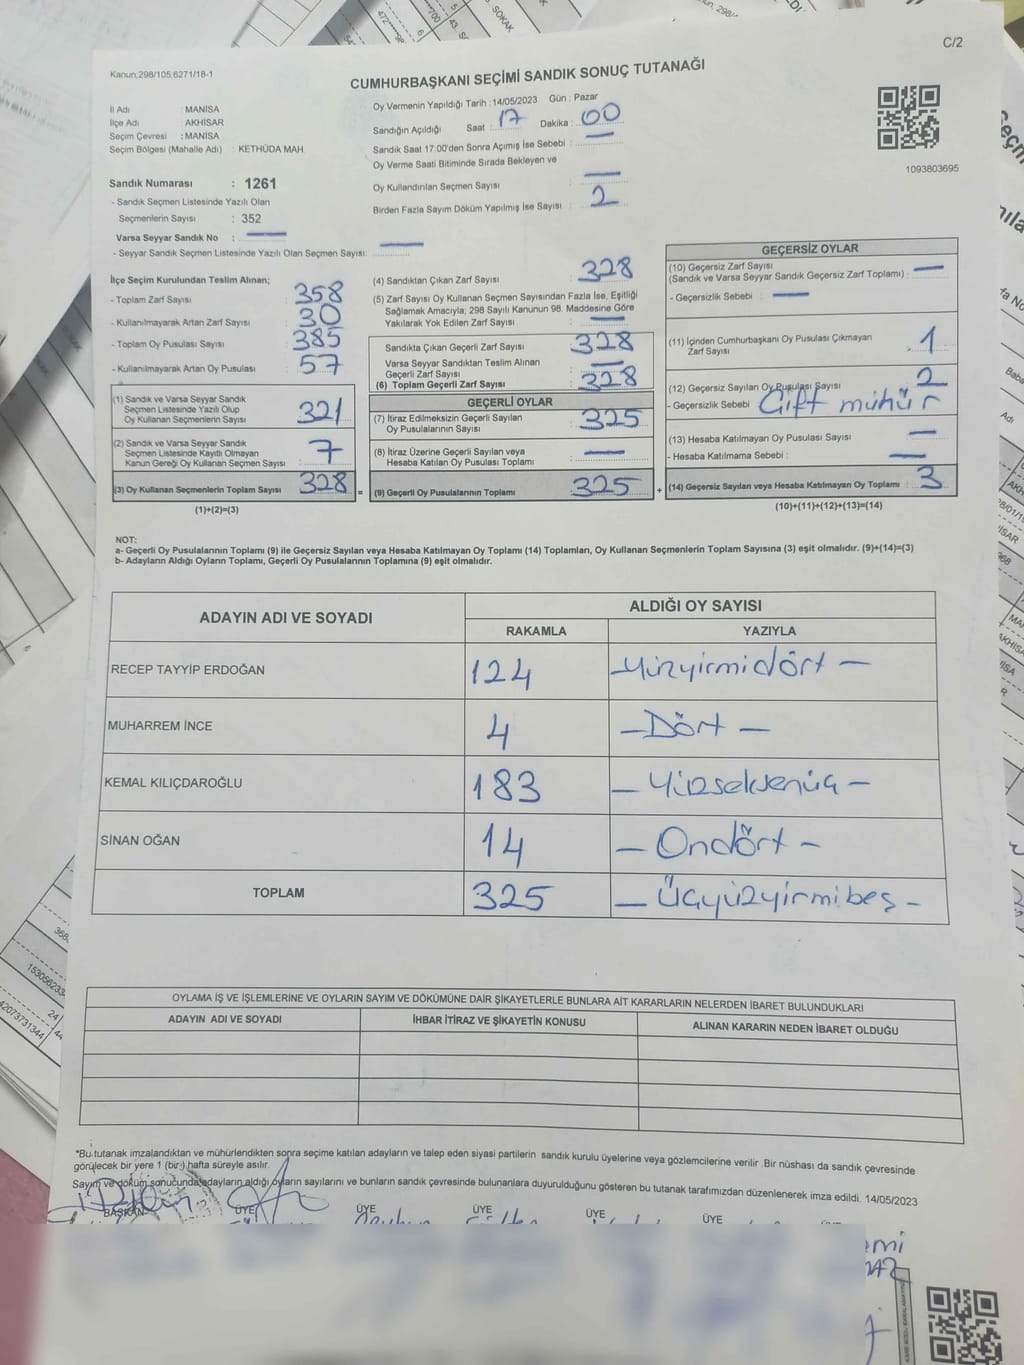 C/2
Kanun;298/105;6271/18-1
CUMHURBAŞKANI SEÇİMİ SANDIK SONUÇ TUTANAĞI
İl Adı : MANİSA
İlçe Adı : AKHİSAR
Seçim Çevresi : MANİSA
Seçim Bölgesi (Mahalle Adı) : KETHÜDA MAH.
Oy Vermenin Yapıldığı Tarih : 14/05/2023 Gün : Pazar
Sandığın Açıldığı Saat : 17 Dakika : 00
Sandık Saat 17:00'den Sonra Açımış İse Sebebi : —
Oy Verme Saati Bitiminde Sırada Bekleyen ve
Oy Kullandırılan Seçmen Sayısı : —
Birden Fazla Sayım Döküm Yapılmış İse Sayısı : 2
1093803695
Sandık Numarası : 1261
- Sandık Seçmen Listesinde Yazılı Olan
Seçmenlerin Sayısı : 352
Varsa Seyyar Sandık No : —
- Seyyar Sandık Seçmen Listesinde Yazılı Olan Seçmen Sayısı: —
İlçe Seçim Kurulundan Teslim Alınan;
- Toplam Zarf Sayısı : 358
- Kullanılmayarak Artan Zarf Sayısı : 30
- Toplam Oy Pusulası Sayısı : 385
- Kullanılmayarak Artan Oy Pusulası : 57
(1) Sandık ve Varsa Seyyar Sandık
Seçmen Listesinde Yazılı Olup
Oy Kullanan Seçmenlerin Sayısı : 321
(2) Sandık ve Varsa Seyyar Sandık
Seçmen Listesinde Kayıtlı Olmayan
Kanun Gereği Oy Kullanan Seçmen Sayısı : 7
(3) Oy Kullanan Seçmenlerin Toplam Sayısı : 328 =
(1)+(2)=(3)
(4) Sandıktan Çıkan Zarf Sayısı : 328
(5) Zarf Sayısı Oy Kullanan Seçmen Sayısından Fazla İse, Eşitliği
Sağlamak Amacıyla; 298 Sayılı Kanunun 98. Maddesine Göre
Yakılarak Yok Edilen Zarf Sayısı : —
Sandıkta Çıkan Geçerli Zarf Sayısı : 328
Varsa Seyyar Sandıktan Teslim Alınan
Geçerli Zarf Sayısı : —
(6) Toplam Geçerli Zarf Sayısı : 328
GEÇERLİ OYLAR
(7) İtiraz Edilmeksizin Geçerli Sayılan
Oy Pusulalarının Sayısı : 325
(8) İtiraz Üzerine Geçerli Sayılan veya
Hesaba Katılan Oy Pusulası Toplamı : —
(9) Geçerli Oy Pusulalarının Toplamı : 325 +
GEÇERSİZ OYLAR
(10) Geçersiz Zarf Sayısı
(Sandık ve Varsa Seyyar Sandık Geçersiz Zarf Toplamı) : —
- Geçersizlik Sebebi : —
(11) İçinden Cumhurbaşkanı Oy Pusulası Çıkmayan
Zarf Sayısı : 1
(12) Geçersiz Sayılan Oy Pusulası Sayısı : 2
- Geçersizlik Sebebi : Çift mühür
(13) Hesaba Katılmayan Oy Pusulası Sayısı : —
- Hesaba Katılmama Sebebi : —
(14) Geçersiz Sayılan veya Hesaba Katılmayan Oy Toplamı : 3
(10)+(11)+(12)+(13)=(14)
NOT:
a- Geçerli Oy Pusulalarının Toplamı (9) ile Geçersiz Sayılan veya Hesaba Katılmayan Oy Toplamı (14) Toplamları, Oy Kullanan Seçmenlerin Toplam Sayısına (3) eşit olmalıdır. (9)+(14)=(3)
b- Adayların Aldığı Oyların Toplamı, Geçerli Oy Pusulalarının Toplamına (9) eşit olmalıdır.
ADAYIN ADI VE SOYADI ALDIĞI OY SAYISI
RAKAMLA YAZIYLA
RECEP TAYYİP ERDOĞAN 124 -Yüzyirmidört -
MUHARREM İNCE 4 - Dört -
KEMAL KILIÇDAROĞLU 183 - Yüzseksenüç -
SİNAN OĞAN 14 - Ondört -
TOPLAM 325 - Üçyüzyirmibeş -
OYLAMA İŞ VE İŞLEMLERİNE VE OYLARIN SAYIM VE DÖKÜMÜNE DAİR ŞİKAYETLERLE BUNLARA AİT KARARLARIN NELERDEN İBARET BULUNDUKLARI
ADAYIN ADI VE SOYADI İHBAR İTİRAZ VE ŞİKAYETİN KONUSU ALINAN KARARIN NEDEN İBARET OLDUĞU
*Bu tutanak imzalandıktan ve mühürlendikten sonra seçime katılan adayların ve talep eden siyasi partilerin sandık kurulu üyelerine veya gözlemcilerine verilir .Bir nüshası da sandık çevresinde
görülecek bir yere 1 (bir ) hafta süreyle asılır.
Sayım ve döküm sonucunda adayların aldığı oyların sayılarını ve bunların sandık çevresinde bulunanlara duyurulduğunu gösteren bu tutanak tarafımızdan düzenlenerek imza edildi. 14/05/2023
BAŞKAN ÜYE ÜYE ÜYE ÜYE ÜYE